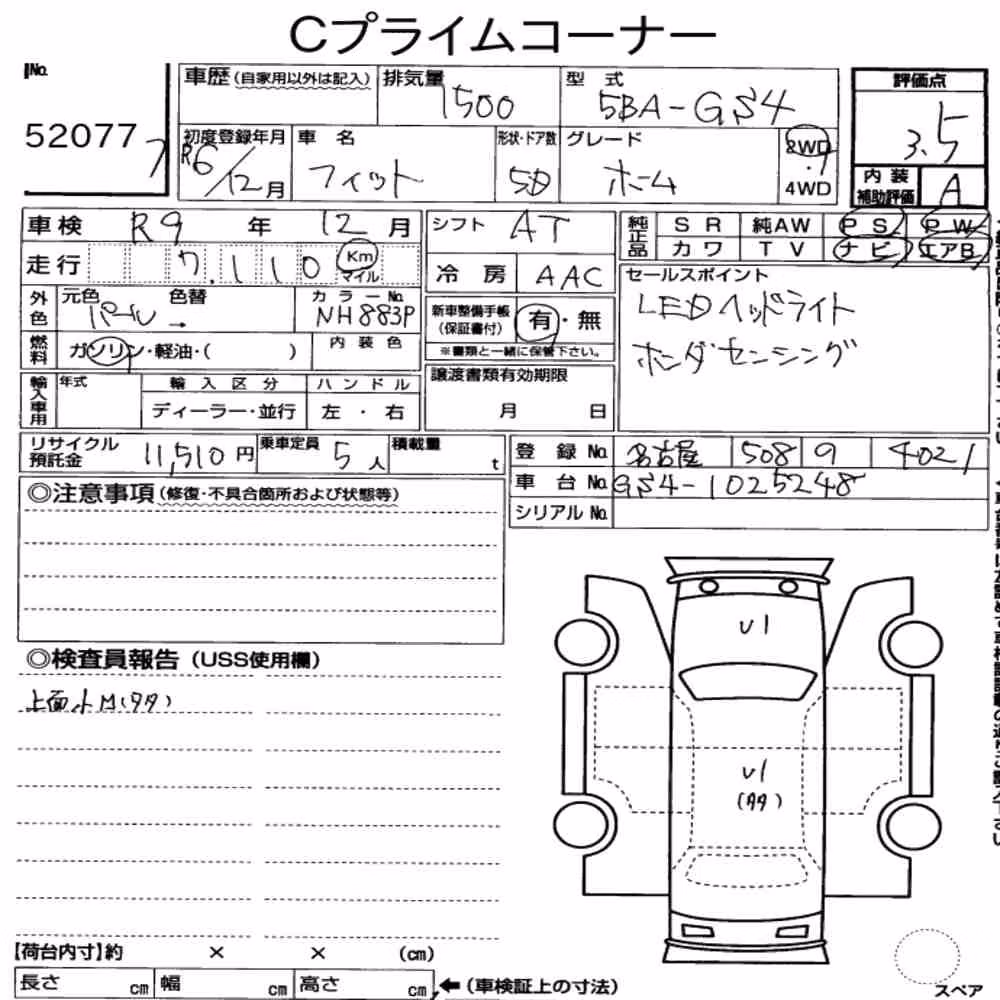 Cプライムコーナー
No.
52077
車歴 (自家用以外は記入)
排気量 1500
型式 5BA-GS4
評価点 3.5
初度登録年月 R6/12月
車名 フィット
形状・ドア数 5D
グレード ホーム
2WD・4WD
内装補助評価 A
車検 R9年 12月
シフト AT
純正品 SR 純AW PS PW
カワ TV ナビ エアB
走行 7,110 Km マイル
冷房 AAC
セールスポイント
LEDヘッドライト
ホンダセンシング
外色 元色 パール→ 色替
カラーNo. NH883P
新車整備手帳(保証書付) 有・無
※書類と一緒に保管下さい。
燃料 ガソリン・軽油・( )
内装色
輸入車用 年式
輸入区分 ディーラー・並行
ハンドル 左・右
譲渡書類有効期限
月 日
リサイクル預託金 11,510円
乗車定員 5人
積載量 t
登録No. 名古屋 508 9 4021
車台No. GS4-1025248
シリアルNo.
◎注意事項(修復・不具合箇所および状態等)
◎検査員報告(USS使用欄)
上面小M(タタ)
U1
U1
(タタ)
【荷台内寸】約 × × (cm)
長さ cm 幅 cm 高さ cm ←(車検証上の寸法)
スペア